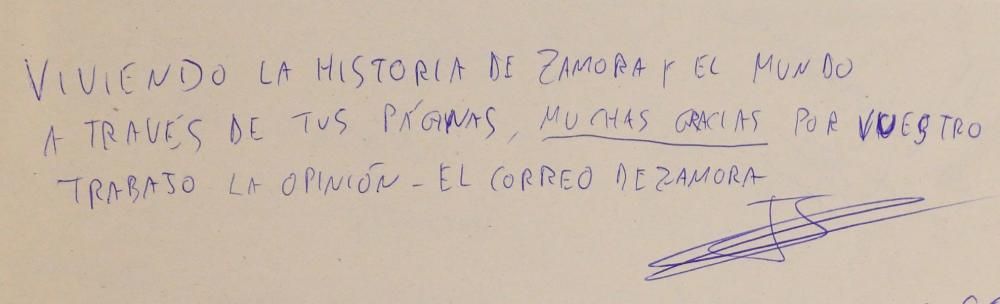 VIVIENDO LA HISTORIA DE ZAMORA Y EL MUNDO
A TRAVÉS DE TUS PÁGINAS, MUCHAS GRACIAS POR VUESTRO
TRABAJO LA OPINIÓN - EL CORREO DE ZAMORA
JS